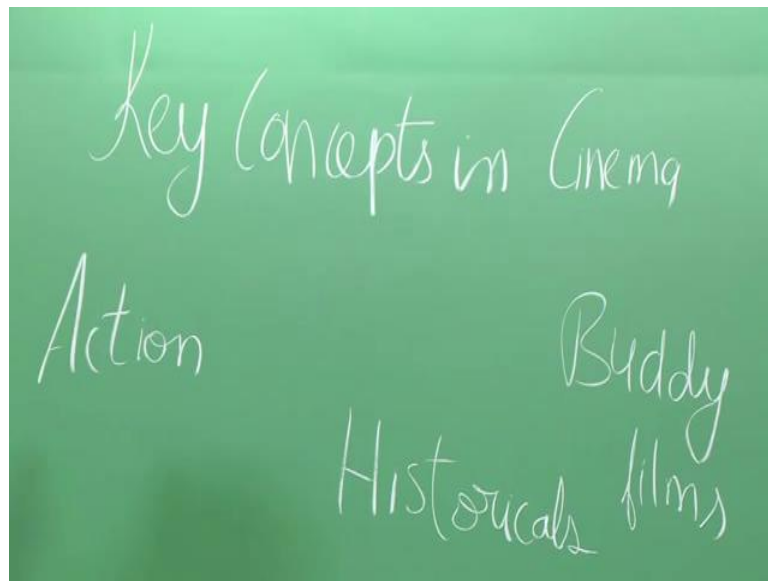 Key Concepts in Cinema
Action
Buddy
films
Historicals